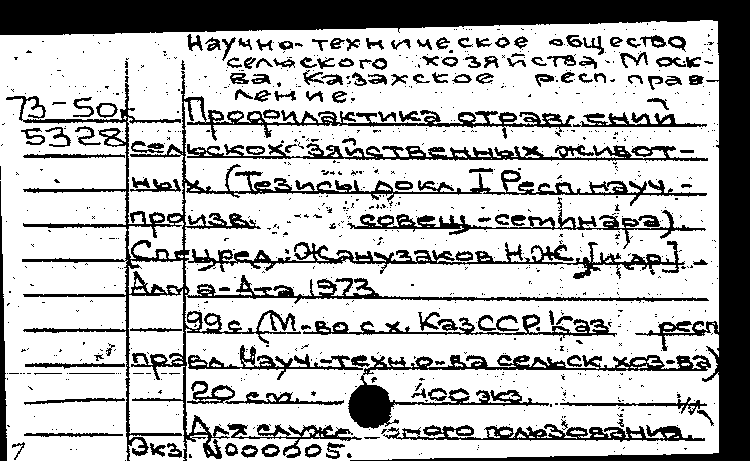 Научно-техническое общество
сельского хозяйства. Моск-
ва. Казахское респ. прав-
ление.
73-50к Профилактика отравлений
5328 сельскохозяйственных живот-
ных. (Тезисы докл. I Респ. науч.-
произв. совещ.-семинара).
[Спец.ред.: Жанузаков Н.Ж. [и др.]
Алма-Ата, 1973
99 с. (М-во с х. КазССР. Каз респ
правл. Науч.-техн. о-ва сельск. хоз-ва)
20 см. 400 экз.
Для служебного пользования.
Экз. N000005.